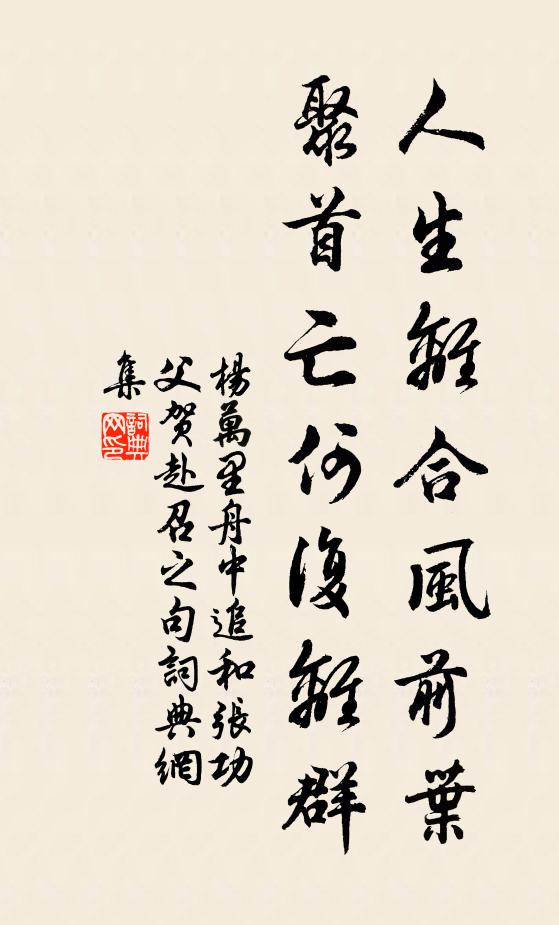 人生離合風前葉
聚首亡何復離群
楊萬里舟中追和張功
父賀赴召之句詞典網
集
詞典网印